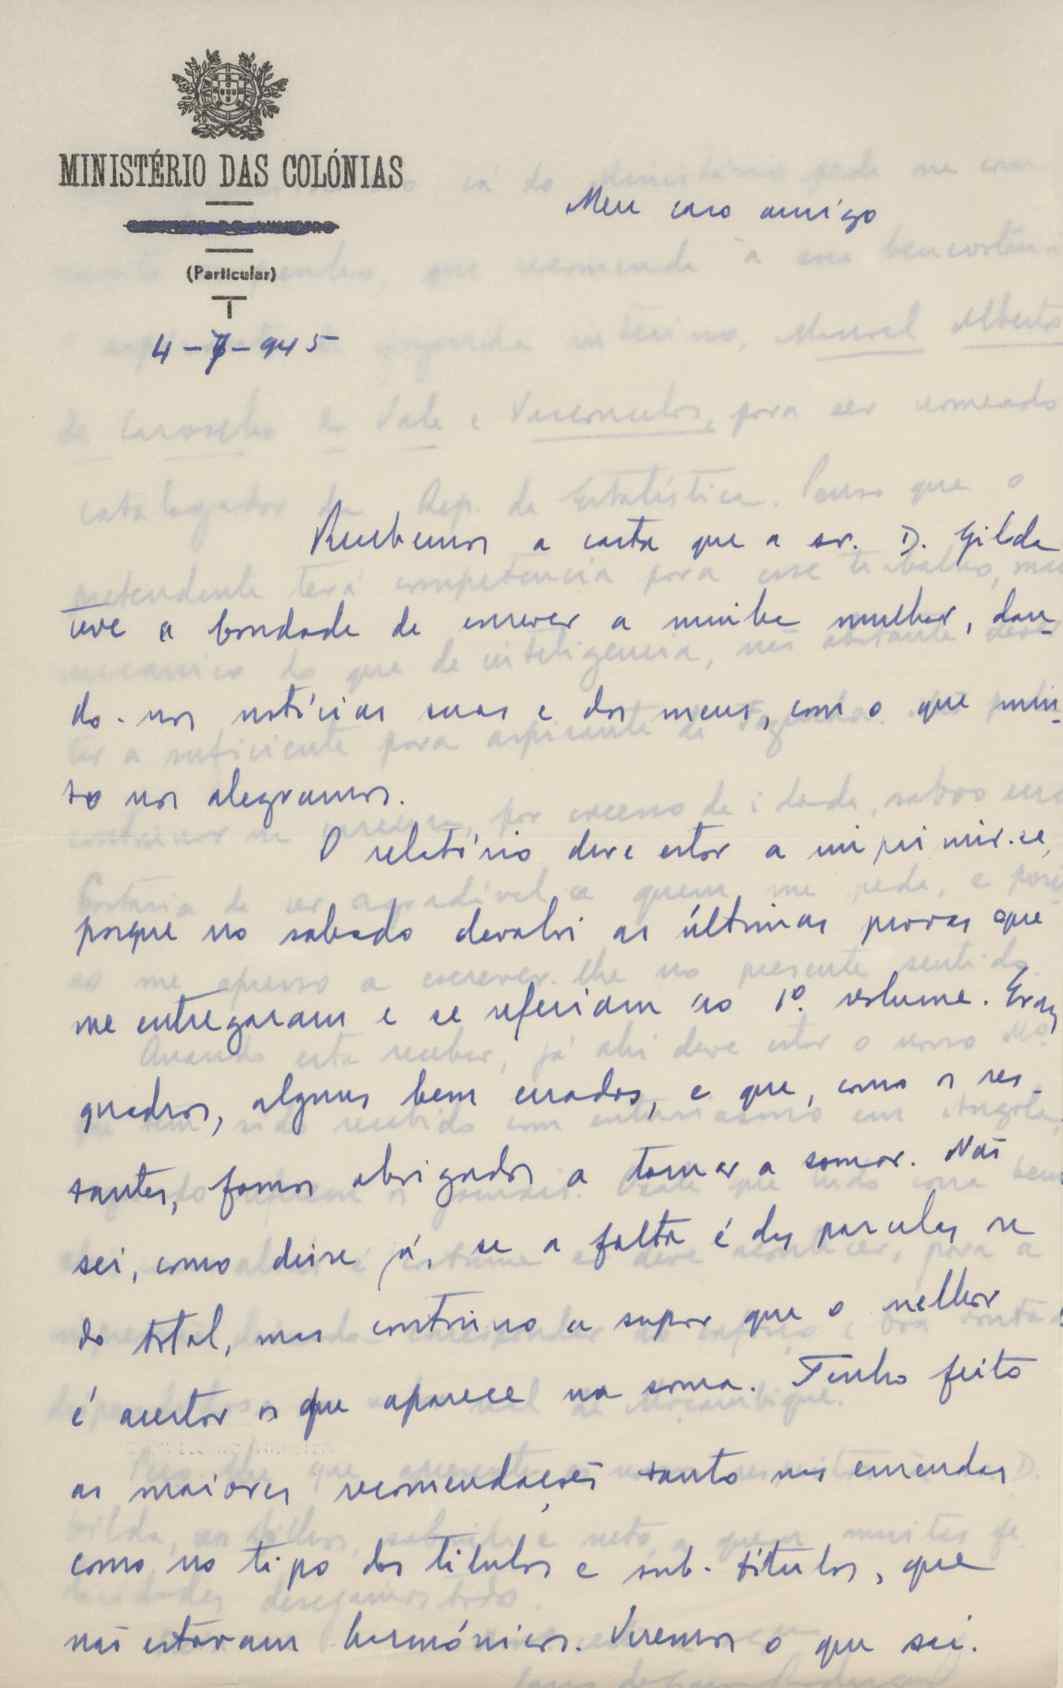 MINISTÉRIO DAS COLÓNIAS
(Particular)
Meu caro amigo
4-7-945
Recebemos a carta que a sr. D. Gilda
teve a bondade de escrever a minha mulher, dan-
do-nos notícias suas e dos meus, com o que mui-
to nos alegramos.
O relatório deve estar a imprimir-se,
porque no sabado devolvi as últimas provas que
me entregaram e se referiam ao 1º. volume. Eram
quadros, alguns bem errados, e que, como os res-
tantes, fomos obrigados a tornar a somar. Não
sei, como disse já, se a falta é das parcelas se
do total, mas continuo a supor que o melhor
é acertar os que aparece na soma. Tenho feito
as maiores recomendações tanto nas emendas
como no tipo dos titulos e sub-titulos, que
não estavam harmónicos. Veremos o que sai.